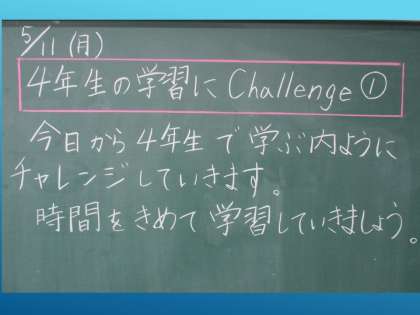 5/11(月)
4年生の学習にChallenge①
今日から4年生で学ぶ内ように
チャレンジしていきます。
時間をきめて学習していきましょう。